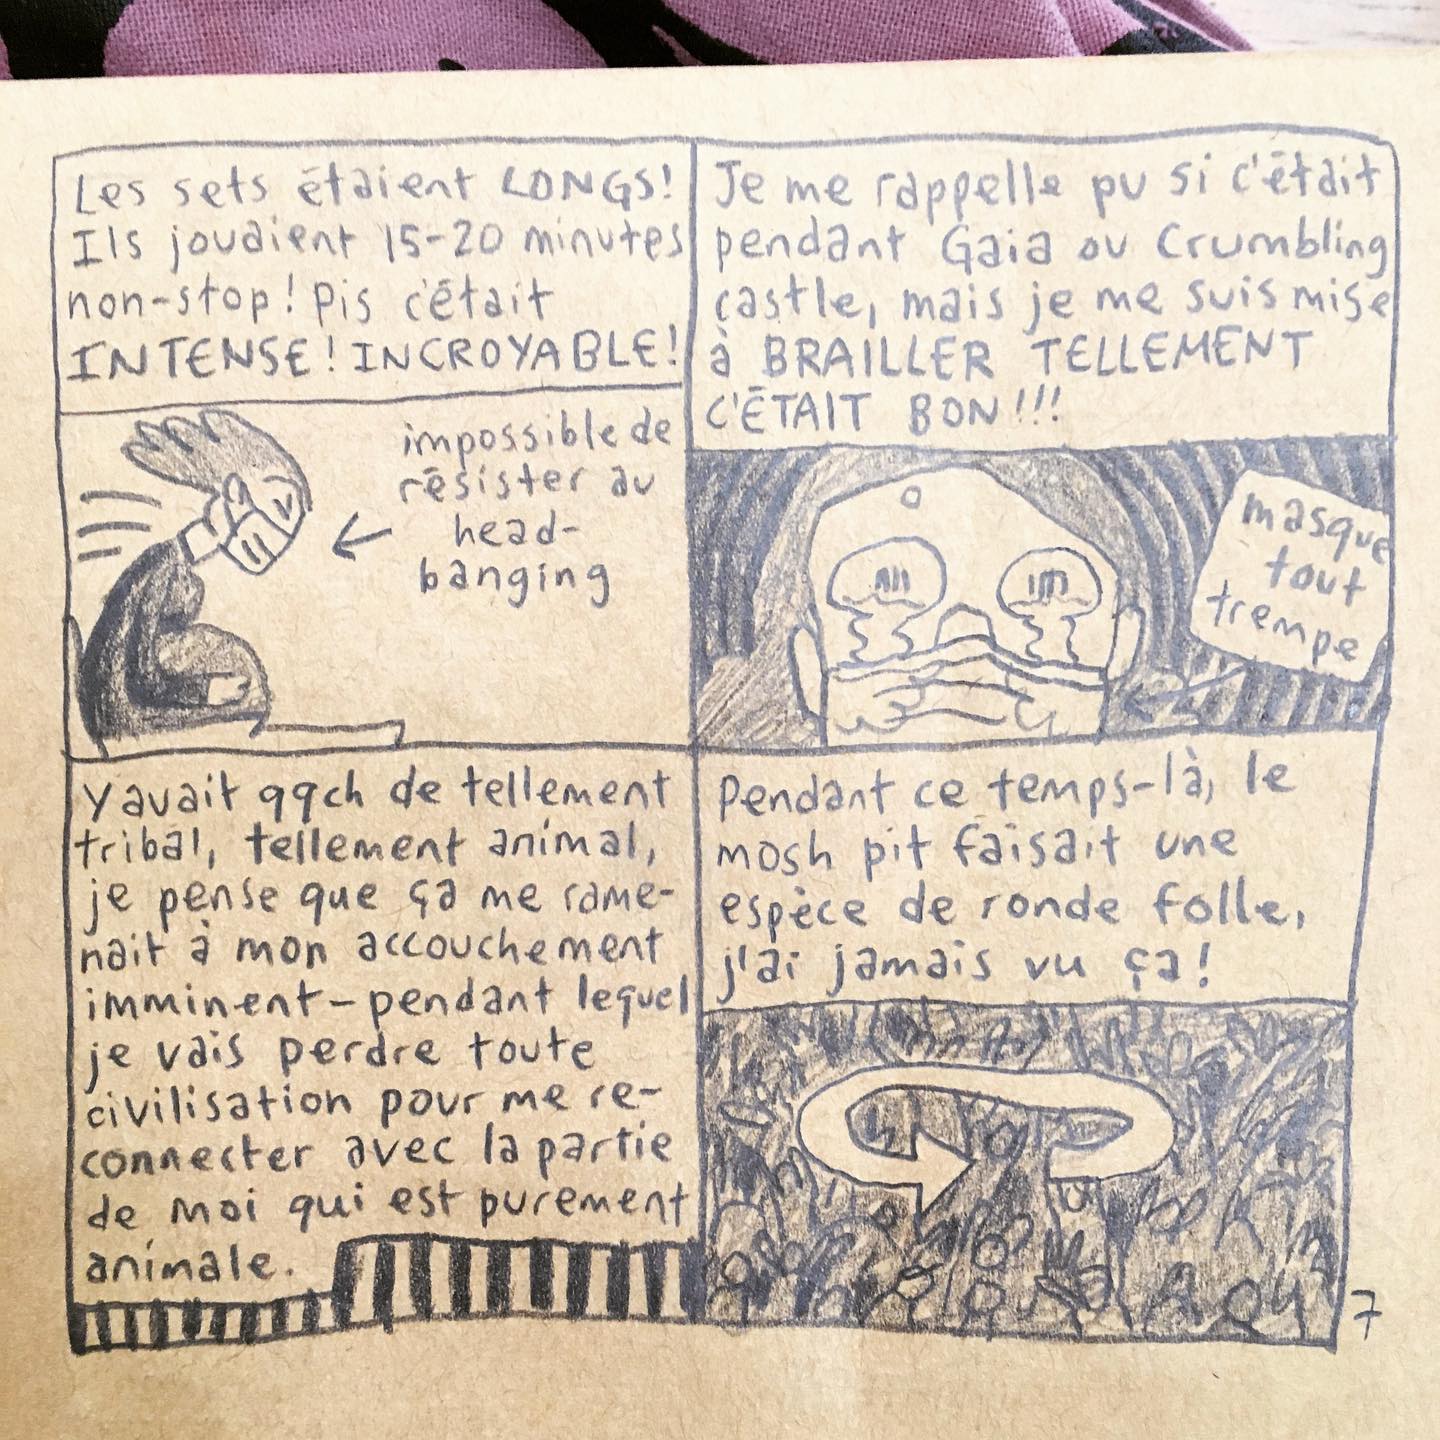 Les sets étaient LONGS!
Ils jouaient 15-20 minutes
non-stop! Pis c'était
INTENSE! INCROYABLE!
impossible de
résister au
head-
banging
Je me rappelle pu si c'était
pendant Gaia ou Crumbling
castle, mais je me suis mise
à BRAILLER TELLEMENT
C'ÉTAIT BON!!!
masque
tout
trempe
Y avait qqch de tellement
tribal, tellement animal,
je pense que ça me rame-
nait à mon accouchement
imminent-pendant lequel
je vais perdre toute
civilisation pour me re-
connecter avec la partie
de moi qui est purement
animale.
Pendant ce temps-là, le
mosh pit faisait une
espèce de ronde folle,
j'ai jamais vu ça!
7